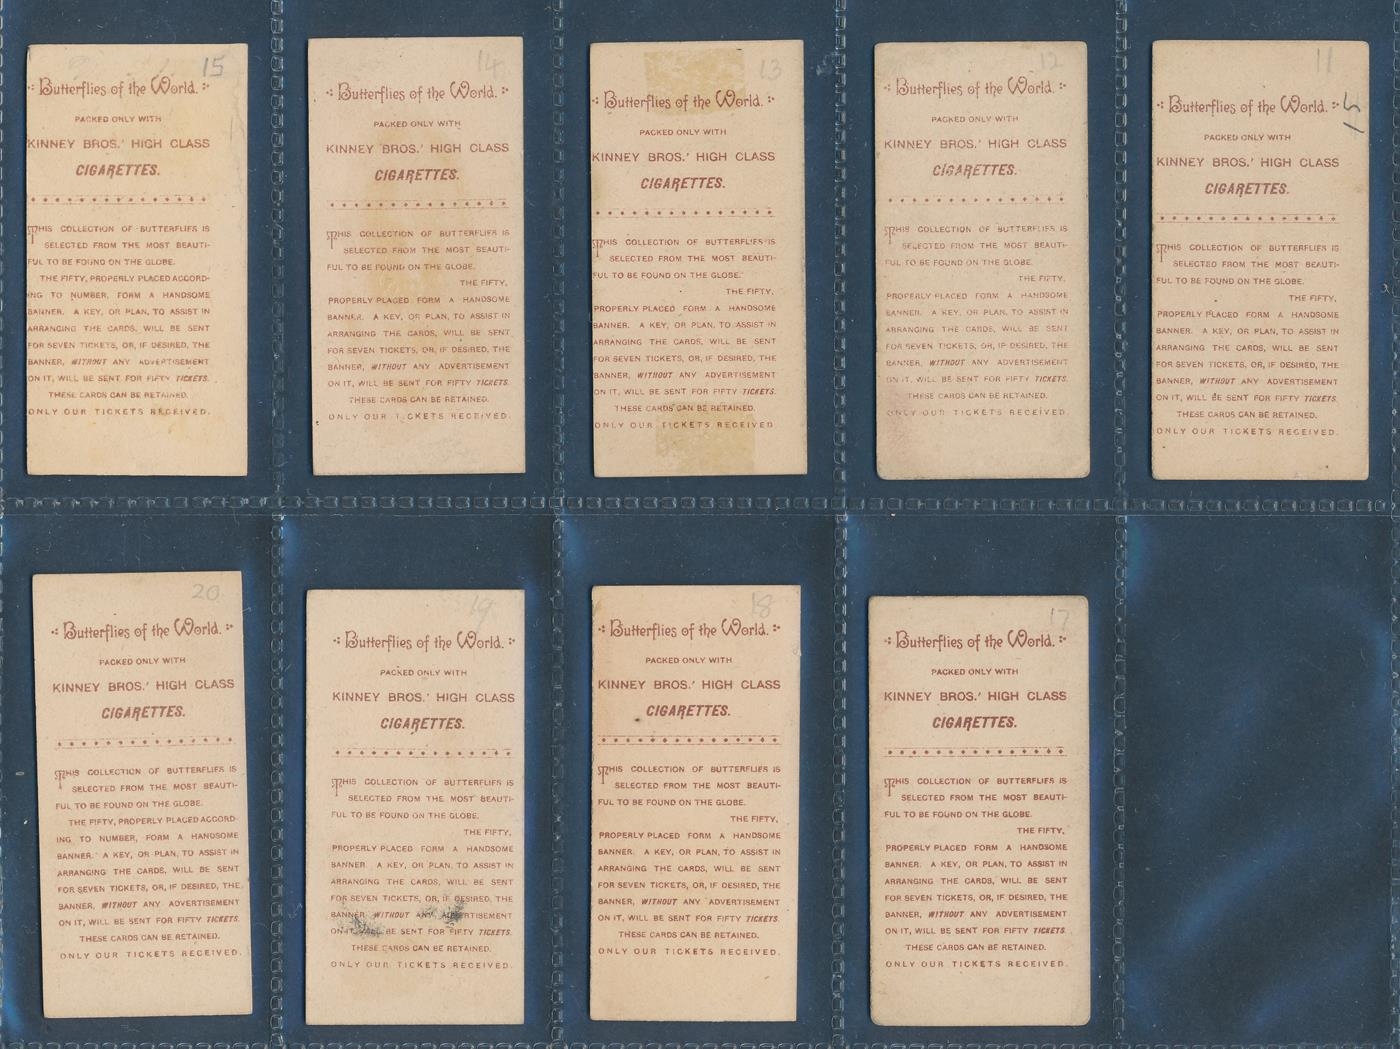 15
Butterflies of the World.
PACKED ONLY WITH
KINNEY BROS.' HIGH CLASS
CIGARETTES.
THIS COLLECTION OF BUTTERFLIES IS
SELECTED FROM THE MOST BEAUTI-
FUL TO BE FOUND ON THE GLOBE.
THE FIFTY, PROPERLY PLACED ACCORD-
ING TO NUMBER, FORM A HANDSOME
BANNER. A KEY, OR PLAN, TO ASSIST IN
ARRANGING THE CARDS, WILL BE SENT
FOR SEVEN TICKETS, OR, IF DESIRED, THE
BANNER, WITHOUT ANY ADVERTISEMENT
ON IT, WILL BE SENT FOR FIFTY TICKETS.
THESE CARDS CAN BE RETAINED.
ONLY OUR TICKETS RECEIVED.
14
Butterflies of the World.
PACKED ONLY WITH
KINNEY BROS.' HIGH CLASS
CIGARETTES.
THIS COLLECTION OF BUTTERFLIES IS
SELECTED FROM THE MOST BEAUTI-
FUL TO BE FOUND ON THE GLOBE.
THE FIFTY,
PROPERLY PLACED FORM A HANDSOME
BANNER. A KEY, OR PLAN, TO ASSIST IN
ARRANGING THE CARDS, WILL BE SENT
FOR SEVEN TICKETS, OR, IF DESIRED, THE
BANNER, WITHOUT ANY ADVERTISEMENT
ON IT, WILL BE SENT FOR FIFTY TICKETS.
THESE CARDS CAN BE RETAINED.
ONLY OUR TICKETS RECEIVED.
13
Butterflies of the World.
PACKED ONLY WITH
KINNEY BROS.' HIGH CLASS
CIGARETTES.
THIS COLLECTION OF BUTTERFLIES IS
SELECTED FROM THE MOST BEAUTI-
FUL TO BE FOUND ON THE GLOBE.
THE FIFTY,
PROPERLY PLACED FORM A HANDSOME
BANNER. A KEY, OR PLAN, TO ASSIST IN
ARRANGING THE CARDS, WILL BE SENT
FOR SEVEN TICKETS, OR, IF DESIRED, THE
BANNER, WITHOUT ANY ADVERTISEMENT
ON IT, WILL BE SENT FOR FIFTY TICKETS.
THESE CARDS CAN BE RETAINED.
ONLY OUR TICKETS RECEIVED
12
Butterflies of the World.
PACKED ONLY WITH
KINNEY BROS.' HIGH CLASS
CIGARETTES.
THIS COLLECTION OF BUTTERFLIES IS
SELECTED FROM THE MOST BEAUTI-
FUL TO BE FOUND ON THE GLOBE.
THE FIFTY,
PROPERLY PLACED FORM A HANDSOME
BANNER. A KEY, OR PLAN, TO ASSIST IN
ARRANGING THE CARDS, WILL BE SENT
FOR SEVEN TICKETS, OR, IF DESIRED, THE
BANNER, WITHOUT ANY ADVERTISEMENT
ON IT, WILL BE SENT FOR FIFTY TICKETS.
THESE CARDS CAN BE RETAINED.
ONLY OUR TICKETS RECEIVED.
11
Butterflies of the World.
PACKED ONLY WITH
KINNEY BROS.' HIGH CLASS
CIGARETTES.
THIS COLLECTION OF BUTTERFLIES IS
SELECTED FROM THE MOST BEAUTI-
FUL TO BE FOUND ON THE GLOBE.
THE FIFTY,
PROPERLY PLACED FORM A HANDSOME
BANNER. A KEY, OR PLAN, TO ASSIST IN
ARRANGING THE CARDS, WILL BE SENT
FOR SEVEN TICKETS, OR, IF DESIRED, THE
BANNER, WITHOUT ANY ADVERTISEMENT
ON IT, WILL BE SENT FOR FIFTY TICKETS.
THESE CARDS CAN BE RETAINED.
ONLY OUR TICKETS RECEIVED.
20
Butterflies of the World.
PACKED ONLY WITH
KINNEY BROS.' HIGH CLASS
CIGARETTES.
THIS COLLECTION OF BUTTERFLIES IS
SELECTED FROM THE MOST BEAUTI-
FUL TO BE FOUND ON THE GLOBE.
THE FIFTY, PROPERLY PLACED ACCORD-
ING TO NUMBER, FORM A HANDSOME
BANNER. A KEY, OR PLAN, TO ASSIST IN
ARRANGING THE CARDS, WILL BE SENT
FOR SEVEN TICKETS, OR, IF DESIRED, THE
BANNER, WITHOUT ANY ADVERTISEMENT
ON IT, WILL BE SENT FOR FIFTY TICKETS.
THESE CARDS CAN BE RETAINED.
ONLY OUR TICKETS RECEIVED.
19
Butterflies of the World.
PACKED ONLY WITH
KINNEY BROS.' HIGH CLASS
CIGARETTES.
THIS COLLECTION OF BUTTERFLIES IS
SELECTED FROM THE MOST BEAUTI-
FUL TO BE FOUND ON THE GLOBE.
THE FIFTY,
PROPERLY PLACED FORM A HANDSOME
BANNER. A KEY, OR PLAN, TO ASSIST IN
ARRANGING THE CARDS, WILL BE SENT
FOR SEVEN TICKETS, OR, IF DESIRED, THE
BANNER, WITHOUT ANY ADVERTISEMENT
ON IT, WILL BE SENT FOR FIFTY TICKETS.
THESE CARDS CAN BE RETAINED.
ONLY OUR TICKETS RECEIVED.
18
Butterflies of the World.
PACKED ONLY WITH
KINNEY BROS.' HIGH CLASS
CIGARETTES.
THIS COLLECTION OF BUTTERFLIES IS
SELECTED FROM THE MOST BEAUTI-
FUL TO BE FOUND ON THE GLOBE.
THE FIFTY,
PROPERLY PLACED FORM A HANDSOME
BANNER. A KEY, OR PLAN, TO ASSIST IN
ARRANGING THE CARDS, WILL BE SENT
FOR SEVEN TICKETS, OR, IF DESIRED, THE
BANNER, WITHOUT ANY ADVERTISEMENT
ON IT, WILL BE SENT FOR FIFTY TICKETS.
THESE CARDS CAN BE RETAINED.
ONLY OUR TICKETS RECEIVED.
17
Butterflies of the World.
PACKED ONLY WITH
KINNEY BROS.' HIGH CLASS
CIGARETTES.
THIS COLLECTION OF BUTTERFLIES IS
SELECTED FROM THE MOST BEAUTI-
FUL TO BE FOUND ON THE GLOBE.
THE FIFTY,
PROPERLY PLACED FORM A HANDSOME
BANNER. A KEY, OR PLAN, TO ASSIST IN
ARRANGING THE CARDS, WILL BE SENT
FOR SEVEN TICKETS, OR, IF DESIRED, THE
BANNER, WITHOUT ANY ADVERTISEMENT
ON IT, WILL BE SENT FOR FIFTY TICKETS.
THESE CARDS CAN BE RETAINED.
ONLY OUR TICKETS RECEIVED.